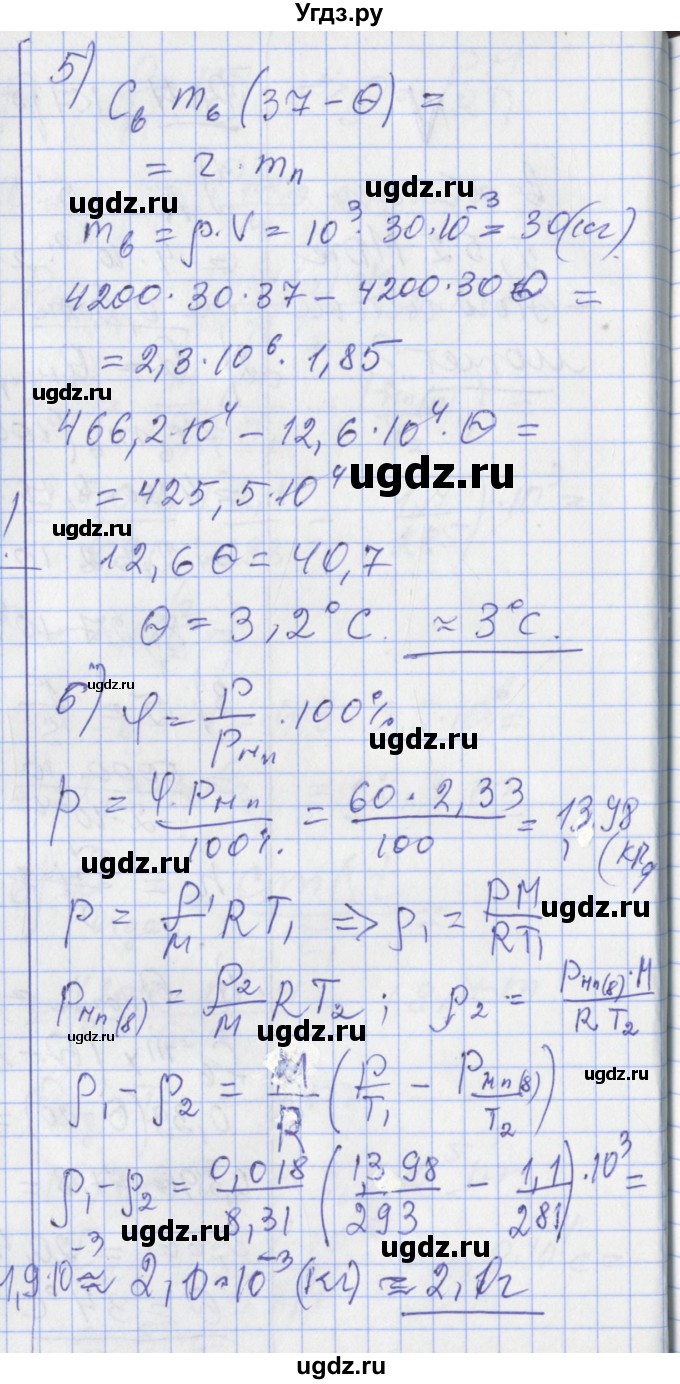 Угдз.ру
5)
C_в m_в (37 - Θ) =
= r · m_п
ugdz.ru
ugdz.ru
m_в = ρ·V = 10³ · 30·10⁻³ = 30(кг).
4200·30·37 - 4200·30 Θ =
= 2,3·10⁶ · 1,85
ugdz.ru
466,2·10⁴ - 12,6·10⁴ · Θ =
ugdz.ru
= 425,5·10⁴
ugdz.ru
12,6 Θ = 40,7
Θ = 3,2°C. ≈ 3°C.
ugdz.ru
6) φ = P/P_нп · 100%
ugdz.ru
P = φ·P_нп/100% = 60·2,33/100 = 13,98 (кПа)
ugdz.ru
P = ρ₁/M RT₁ => ρ₁ = PM/RT₁
ugdz.ru
P_нп(8) = ρ₂/M RT₂ ; ρ₂ = P_нп(8)·M/RT₂
ugdz.ru
ugdz.ru
ρ₁ - ρ₂ = M/R (P/T₁ - P_нп(8)/T₂)
ugdz.ru
ρ₁ - ρ₂ = 0,018/8,31 (13,98/293 - 1,1/281)·10³ =
ugdz.ru
ugdz.ru
1,9·10⁻³ ≈ 2,0·10⁻³ (кг) = 2,0г
ugdz.ru